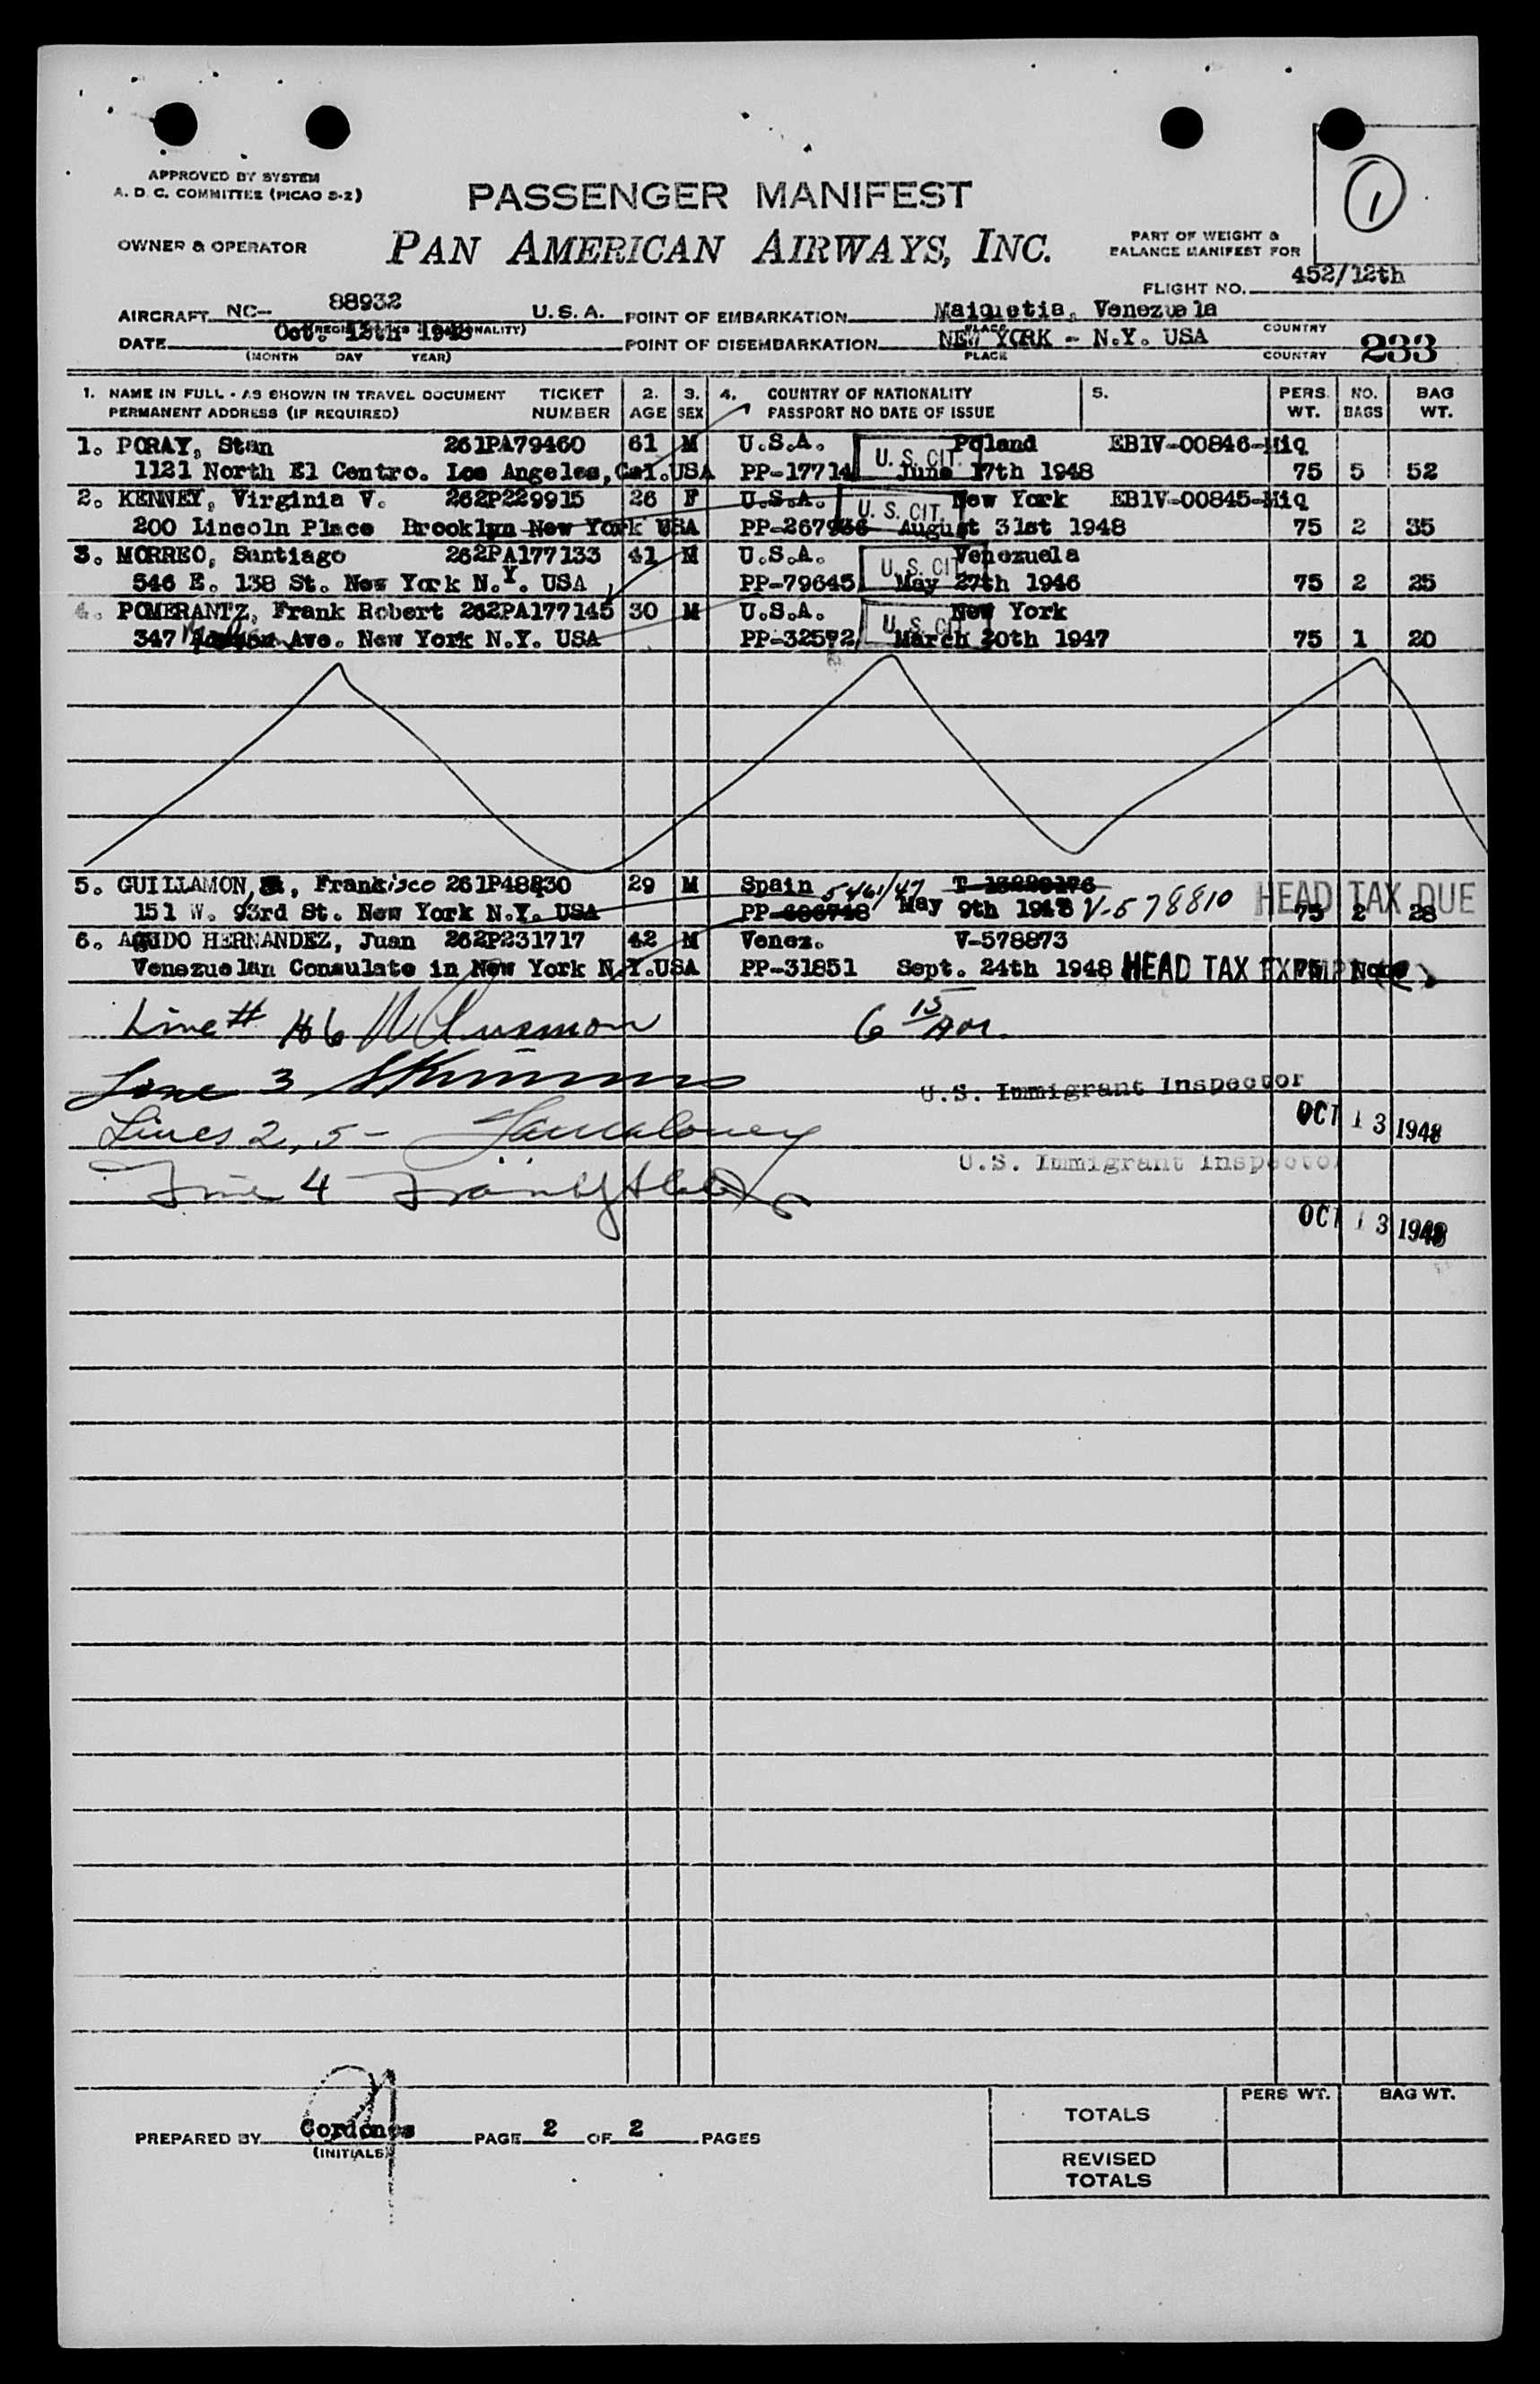 APPROVED BY SYSTEM
A. D. C. COMMITTEE (PICAO S-2)
PASSENGER MANIFEST
1
OWNER & OPERATOR
PAN AMERICAN AIRWAYS, INC.
PART OF WEIGHT &
BALANCE MANIFEST FOR
FLIGHT NO. 452/12th
AIRCRAFT NC-- 88932 U.S.A. POINT OF EMBARKATION Maiquetia, Venezuela
DATE Oct. 12th 1948 POINT OF DISEMBARKATION NEW YORK - N.Y. USA 233
(MONTH DAY YEAR) PLACE COUNTRY
1. NAME IN FULL - AS SHOWN IN TRAVEL DOCUMENT TICKET 2. 3. 4. COUNTRY OF NATIONALITY 5. PERS. NO. BAG
PERMANENT ADDRESS (IF REQUIRED) NUMBER AGE SEX PASSPORT NO DATE OF ISSUE WT. BAGS WT.
1. PORAY, Stan 261PA79460 61 M U.S.A. U. S. CIT. Poland EB1V-00846-Miq
1121 North El Centro. Los Angeles, Cal. USA PP-17714 June 17th 1948 75 5 52
2. KENNEY, Virginia V. 262P229915 26 F U.S.A. U. S. CIT. New York EB1V-00845-Miq
200 Lincoln Place Brooklyn New York USA PP-267936 August 31st 1948 75 2 35
3. MORREO, Santiago 262PA177133 41 M U.S.A. U. S. CIT Venezuela
546 E. 138 St. New York N.Y. USA PP-79645 May 27th 1946 75 2 25
4. POMERANTZ, Frank Robert 262PA177145 30 M U.S.A. U. S. CIT New York
347 Ave. New York N.Y. USA PP-32572 March 20th 1947 75 1 20
5. GUILLAMON, Francisco 261P48830 29 M Spain 5461/47 T-13229176 HEAD TAX DUE
151 W. 93rd St. New York N.Y. USA PP-686748 May 9th 1948 V-578810 75 2 28
6. AGUDO HERNANDEZ, Juan 262P231717 42 M Venez. V-578873
Venezuelan Consulate in New York N.Y. USA PP-31851 Sept. 24th 1948 HEAD TAX EXEMPT 75 None
Line # 6 6 15 AM
Line 3
U.S. Immigrant Inspector
Lines 2, 5 - OCT 13 1948
U.S. Immigrant Inspector
Line 4
OCT 13 1948
PREPARED BY Cordones PAGE 2 OF 2 PAGES
(INITIALS)
PERS WT. BAG WT.
TOTALS
REVISED
TOTALS